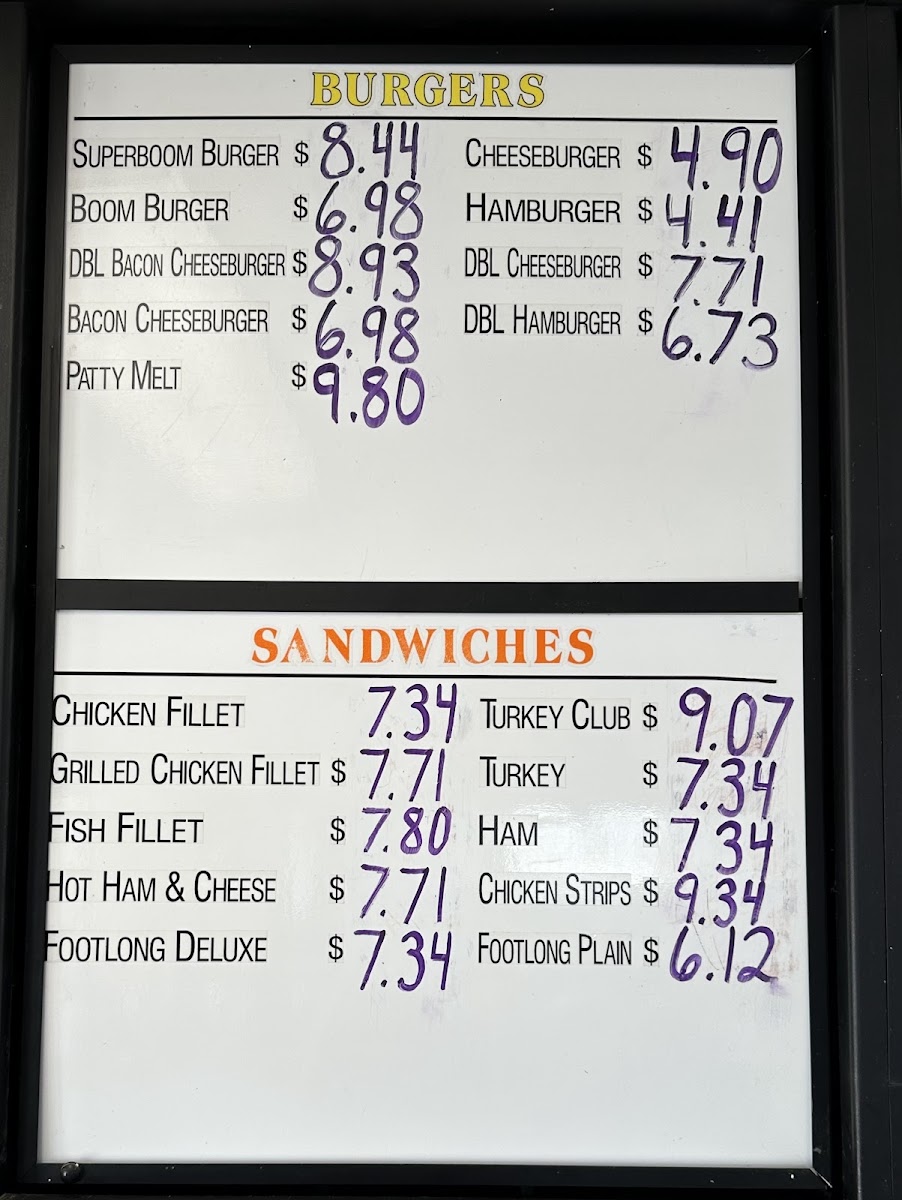 BURGERS
SUPERBOOM BURGER $ 8.44
BOOM BURGER $ 6.98
DBL BACON CHEESEBURGER $ 8.93
BACON CHEESEBURGER $ 6.98
PATTY MELT $ 9.80
CHEESEBURGER $ 4.90
HAMBURGER $ 4.41
DBL CHEESEBURGER $ 7.71
DBL HAMBURGER $ 6.73
SANDWICHES
CHICKEN FILLET 7.34
GRILLED CHICKEN FILLET $ 7.71
FISH FILLET $ 7.80
HOT HAM & CHEESE $ 7.71
FOOTLONG DELUXE $ 7.34
TURKEY CLUB $ 9.07
TURKEY $ 7.34
HAM $ 7.34
CHICKEN STRIPS $ 9.34
FOOTLONG PLAIN $ 6.12